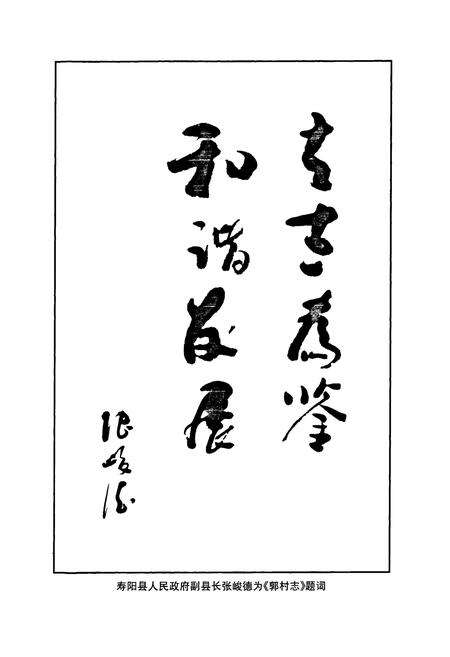 為鉴
和谐发展
张峻德
寿阳县人民政府副县长张峻德为《郭村志》题词